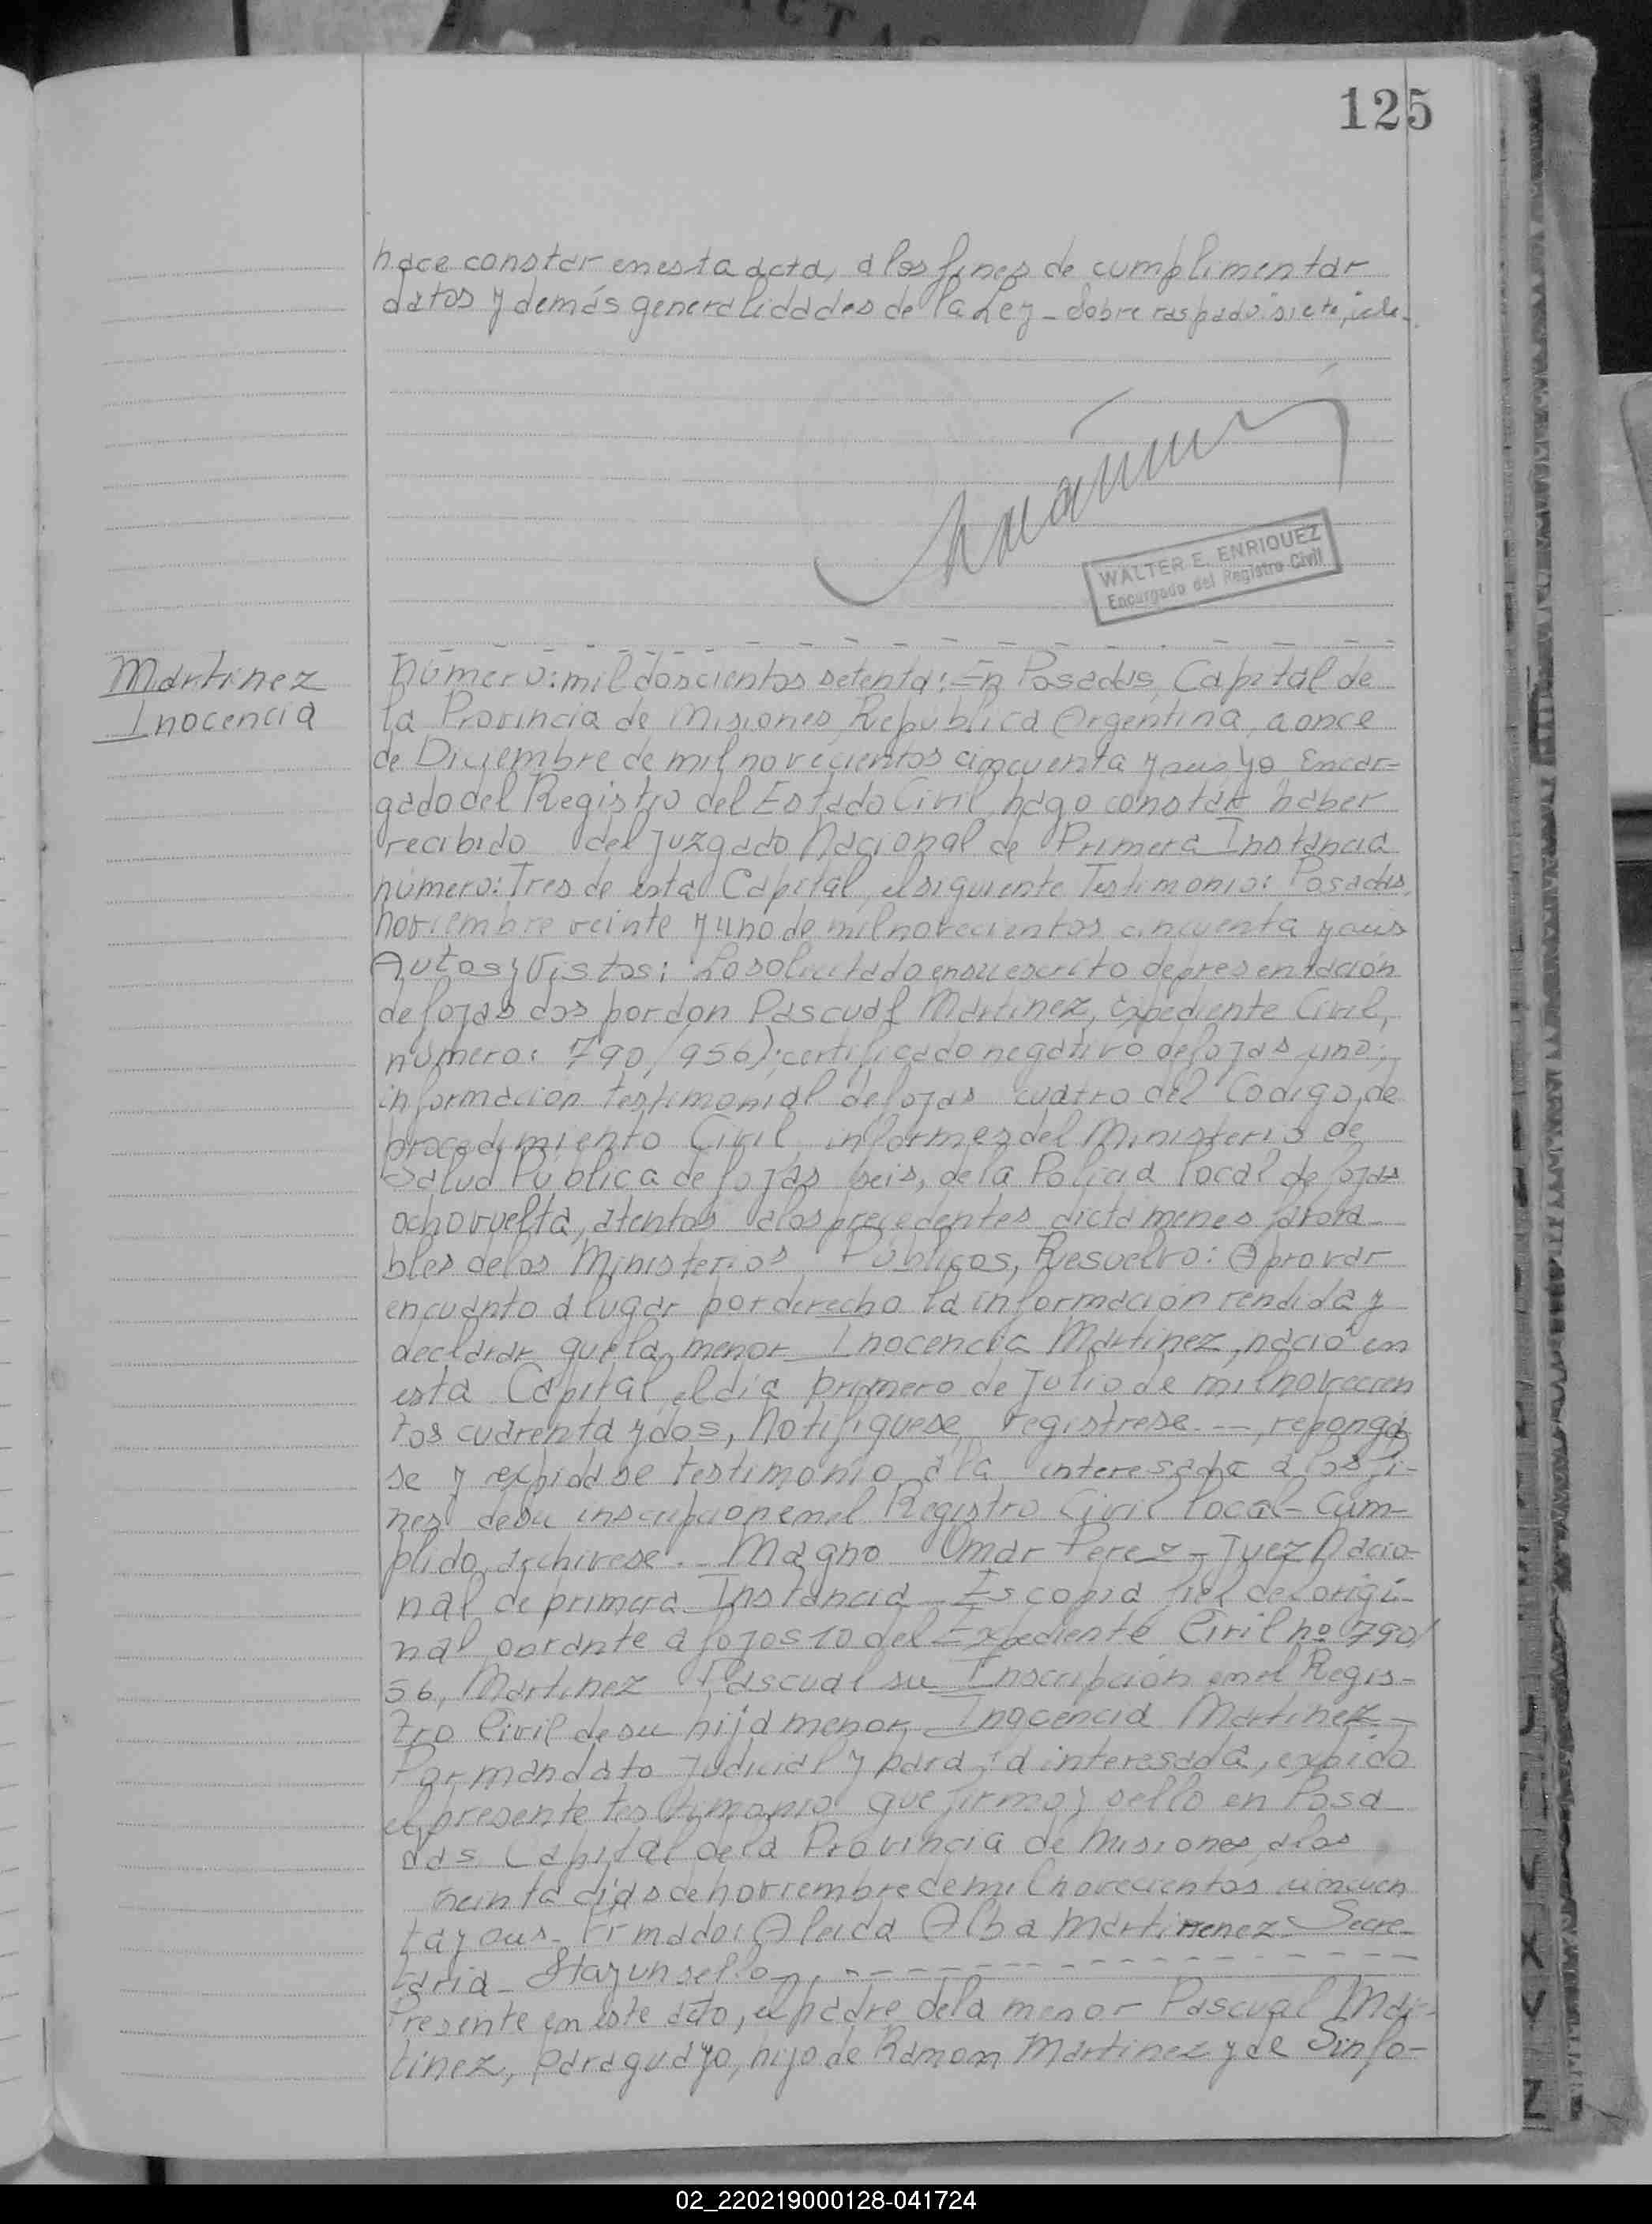 125
hace constar en esta acta, a los fines de cumplimentar
datos y demás generalidades de la Ley - Sobre raspado: siete, vale-.
WALTER E. ENRIQUEZ
Encargado del Registro Civil
Martinez
Inocencia
Número: mil doscientos setenta: En Posadas, Capital de
la Provincia de Misiones, Republica Argentina, a once
de Diciembre de mil novecientos cincuenta y seis yo Encar-
gado del Registro del Estado Civil, hago constar haber
recibido del Juzgado Nacional de Primera Instancia
número: Tres de esta Capital, el siguiente Testimonio: Posadas,
noviembre veinte y uno de mil novecientos cincuenta y seis
Autos y Vistos: Lo solicitado en su escrito de presentación
de fojas dos por don Pascual Martinez, expediente Civil,
número: 790/956); certificado negativo de fojas uno;
informacion testimonial de fojas cuatro del Codigo de
procedimiento Civil, informes del Ministerio de
Salud Pública de fojas seis, de la Policia local de fojas
ocho vuelta, atentos a los precedentes dictamenes favora-
bles de los Ministerios Públicos, Resuelvo: Aprovar
en cuanto a lugar por derecho la información rendida y
declarar que la menor Inocencia Martinez, nació en
esta Capital, el dia primero de Julio de mil novecien
tos cuarenta y dos, Notifiquese, registrese. —, reponga
se y expidase testimonio a la interesada a los fi-
nes de su inscripcion en el Registro Civil local - Cum-
plido, archivese. - Magno Omar Perez - Juez Nacio-
nal de primera Instancia - Es copia fiel del origi-
nal obrante a fojos 10 del Expediente Civil nº 790/
56, Martinez Pascual su Inscripción en el Regis-
tro Civil de su hija menor, Inocencia Martinez -
Por mandato Judicial y para la interesada, expido
el presente testimonio que firmo y sello en Posa
das Capital de la Provincia de Misiones, a los
treinta dias de noviembre de mil novecientos cincuen
ta y seis - Firmado: Aleida Alba Martinenez - Secre-
taria - Hay un sello -, - - - - - - - - - - - -
Presente en este acto, el padre de la menor Pascual Mar-
tinez, paraguayo, hijo de Ramon Martinez y de Sinfo-
02_220219000128-041724